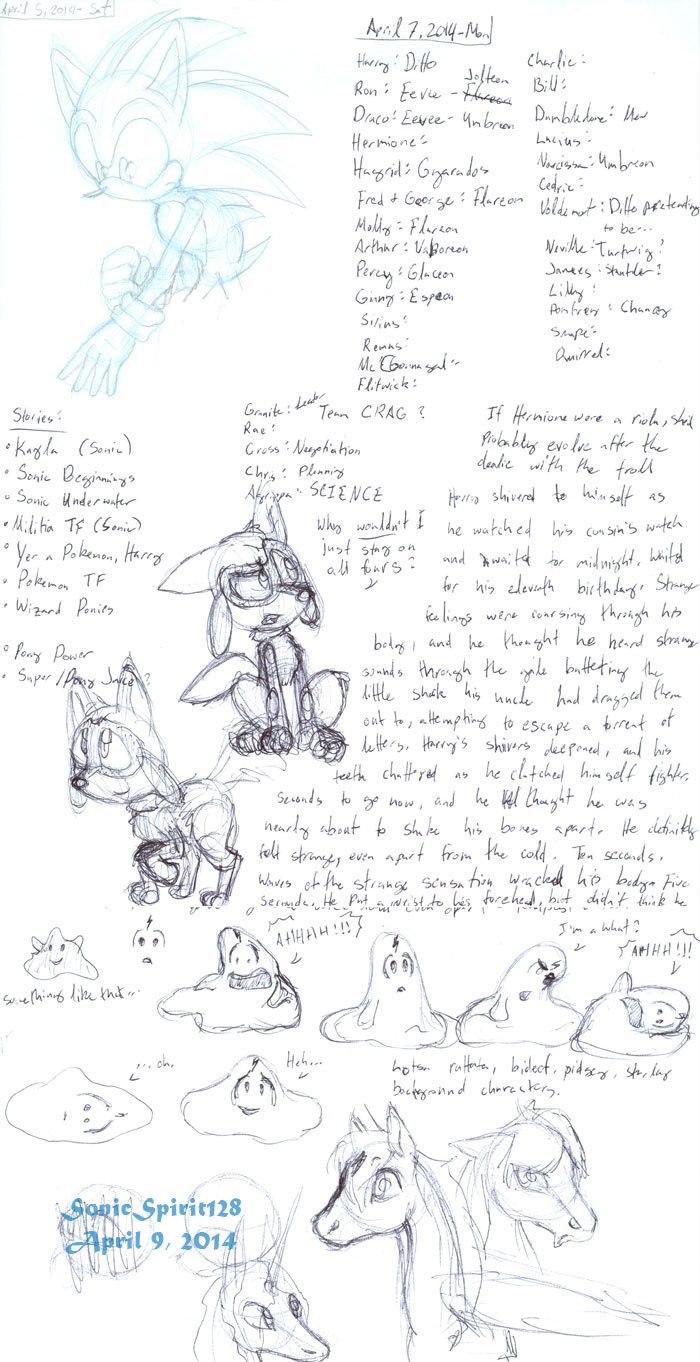 April 5, 2014- Sat
April 7, 2014-Mon
Harry: Ditto
Ron: Eevee - Flareon Jolteon
Draco: Eevee- Umbreon
Hermione:
Hagrid: Gyarados
Fred + George: Flareon
Molly: Flareon
Arthur: Vaporeon
Percy: Glaceon
Ginny: Espeon
Sirius:
Remus:
McGonnagal:
Flitwick:
Charlie:
Bill:
Dumbledore: Mew
Lucius:
Narcissa: Umbreon
Cedric:
Voldemort: Ditto pretending
to be...
Neville: Turtwig?
James: Stantler?
Lilly:
Pomfrey: Chancey
Snape:
Quirrel:
Stories:
• Kayla (Sonic)
• Sonic Beginnings
• Sonic Underwater
• Militia TF (Sonic)
• Yer a Pokemon, Harry
• Pokemon TF
• Wizard Ponies
• Pony Power
• Super/Pony Juice?
Granite: Leader Team CRAG?
Rae:
Cross: Negotiation
Chris: Planning
Agrippa: SCIENCE
If Hermione were a riolu, she'd
probably evolve after the
dealie with the troll
Why wouldn't I
just stay on
all fours?
Harry shivered to himself as
he watched his cousin's watch
and waited for midnight. Waited
for his eleventh birthday. Strange
feelings were coursing through his
body, and he thought he heard strange
sounds through the gale buffeting the
little shack his uncle had dragged them
out to, attempting to escape a torrent of
letters. Harry's shivers deepened, and his
teeth chattered as he clutched himself tighter.
Seconds to go now, and he thought he was
nearly about to shake his bones apart. He definitely
felt strange, even apart from the cold. Ten seconds.
Waves of the strange sensation wracked his body. Five
seconds. He put a wrist to his forehead, but didn't think he
something like that...
AHHHH!!!
I'm a what?
AHHH!!!
...oh.
Heh...
Lotsa rattata, bidoof, pidgey, starly
background characters.
SonicSpirit128
April 9, 2014